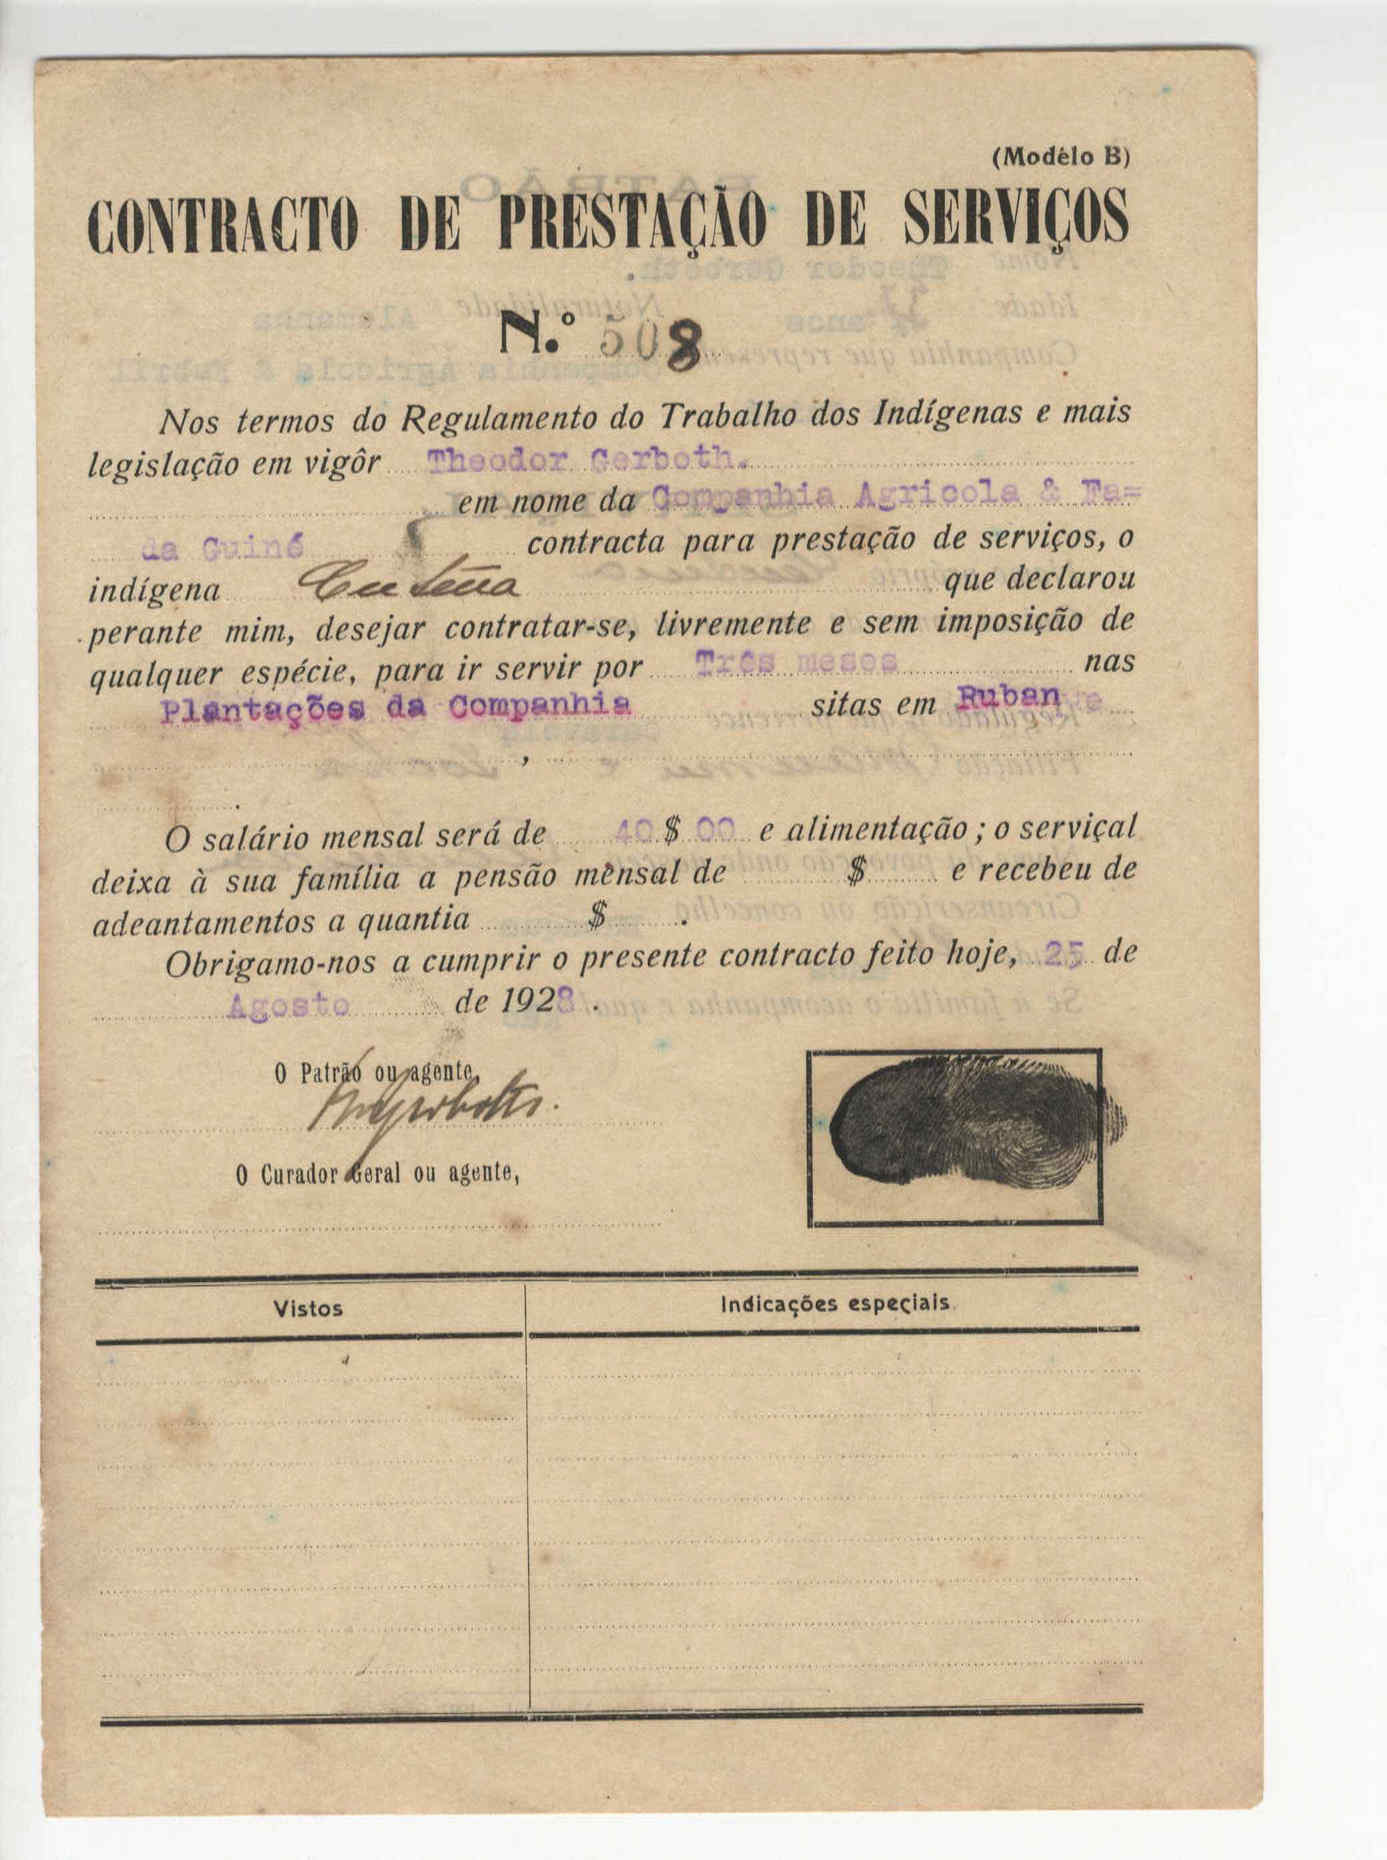 (Modêlo B)
CONTRACTO DE PRESTAÇÃO DE SERVIÇOS
N.º 508
Nos termos do Regulamento do Trabalho dos Indígenas e mais
legislação em vigôr Theodor Gerboth.
em nome da Companhia Agricola & Fa=
da Guiné contracta para prestação de serviços, o
indígena que declarou
perante mim, desejar contratar-se, livremente e sem imposição de
qualquer espécie, para ir servir por Três meses nas
Plantações da Companhia sitas em Ruban
O salário mensal será de 40$00 e alimentação; o serviçal
deixa à sua família a pensão mensal de $ e recebeu de
adeantamentos a quantia $ .
Obrigamo-nos a cumprir o presente contracto feito hoje, 25 de
Agosto de 1928.
O Patrão ou agente,
O Curador Geral ou agente,
Vistos Indicações especiais